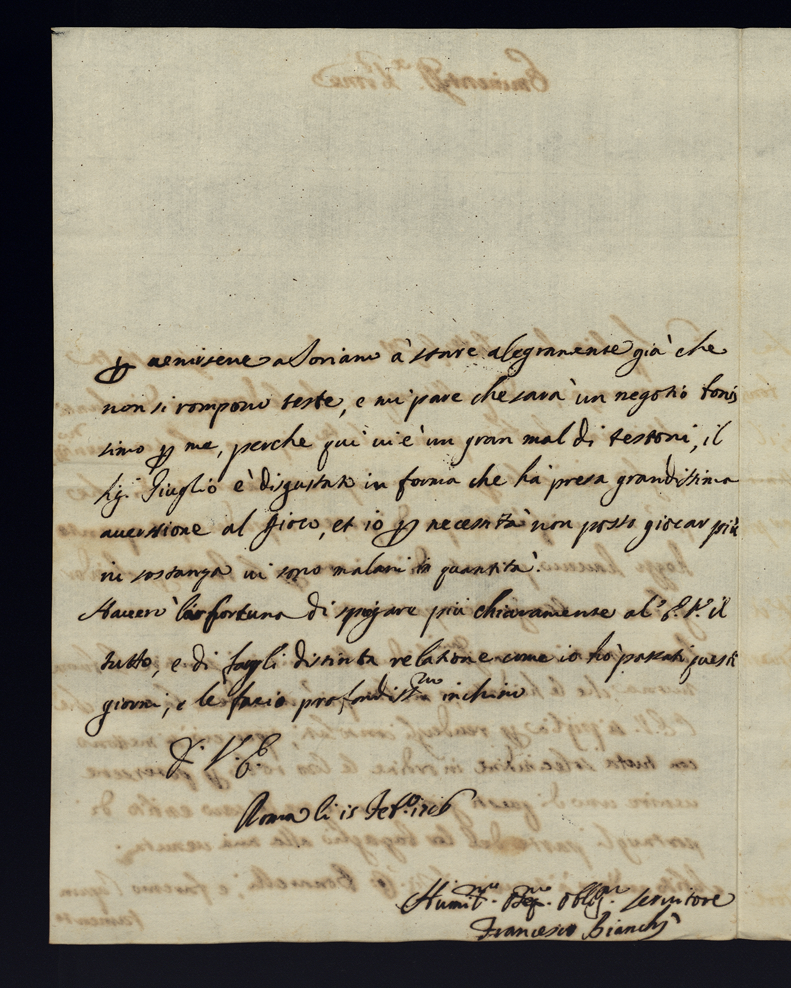 ꝑ uenirsene a Soriano à stare alegramente già che
non si rompono teste, e mi pare che sarà un negotio bonis
simo ꝑ me, perche qui ui è un gran mal di testoni, il
Sigr Giuglio è disgustato in forma che hà presa grandissima
auerssione al Gioco, et io ꝑ necessità non posso giocar più
in sostanza ui sono malani in quantità.
Hauerò la fortuna di spiegare più chiaramente al E. V. il
tutto, e di fargli distinta relatione come io hò passati questi
giorni, e le facio profondissmo inchino
D. V. E.
Roma li 15 Febro 1716
Humilmo Deuomo Obligmo seruitore
Francesco Bianchj